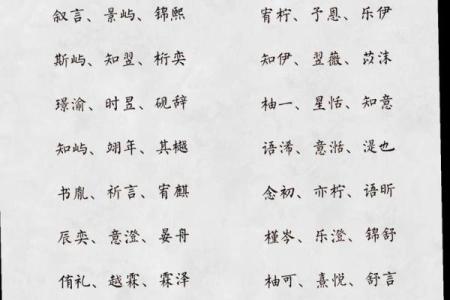 叙言、景屿、锦熙
斯屿、知翌、桁奕
璟渝、时昱、砚辞
知屿、翊年、其樾
书胤、祈言、宥麒
辰奕、意澄、晏舟
侑礼、越霖、霖泽
宥柠、予恩、乐伊
知伊、翌薇、苡沫
柚一、星恬、知意
语浠、意湉、湜也
念初、亦柠、语昕
槿岑、乐澄、锦舒
柚可、熹悦、舒言